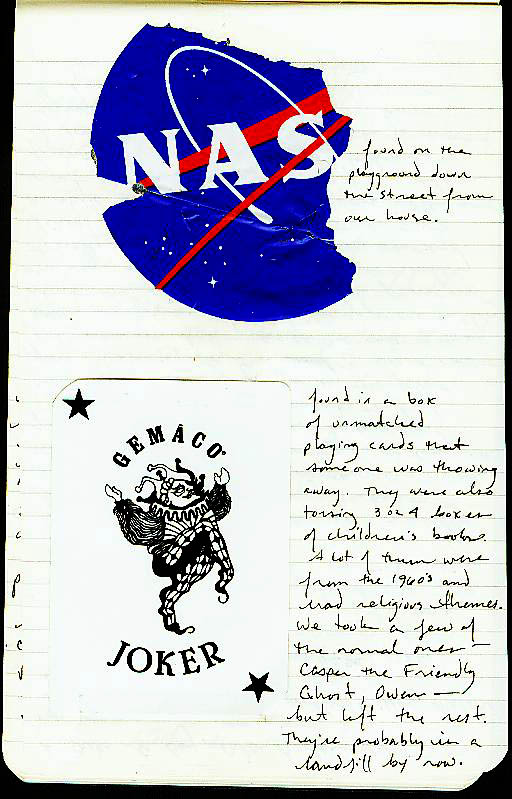 NAS
found on the
playground down
the street from
our house.
GEMACO
JOKER
found in a box
of unmatched
playing cards that
someone was throwing
away. They were also
tossing 3 or 4 boxes
of children's books.
A lot of them were
from the 1960's and
had religious themes.
We took a few of
the normal ones —
Casper the Friendly
Ghost, Owen —
but left the rest.
They're probably in a
landfill by now.